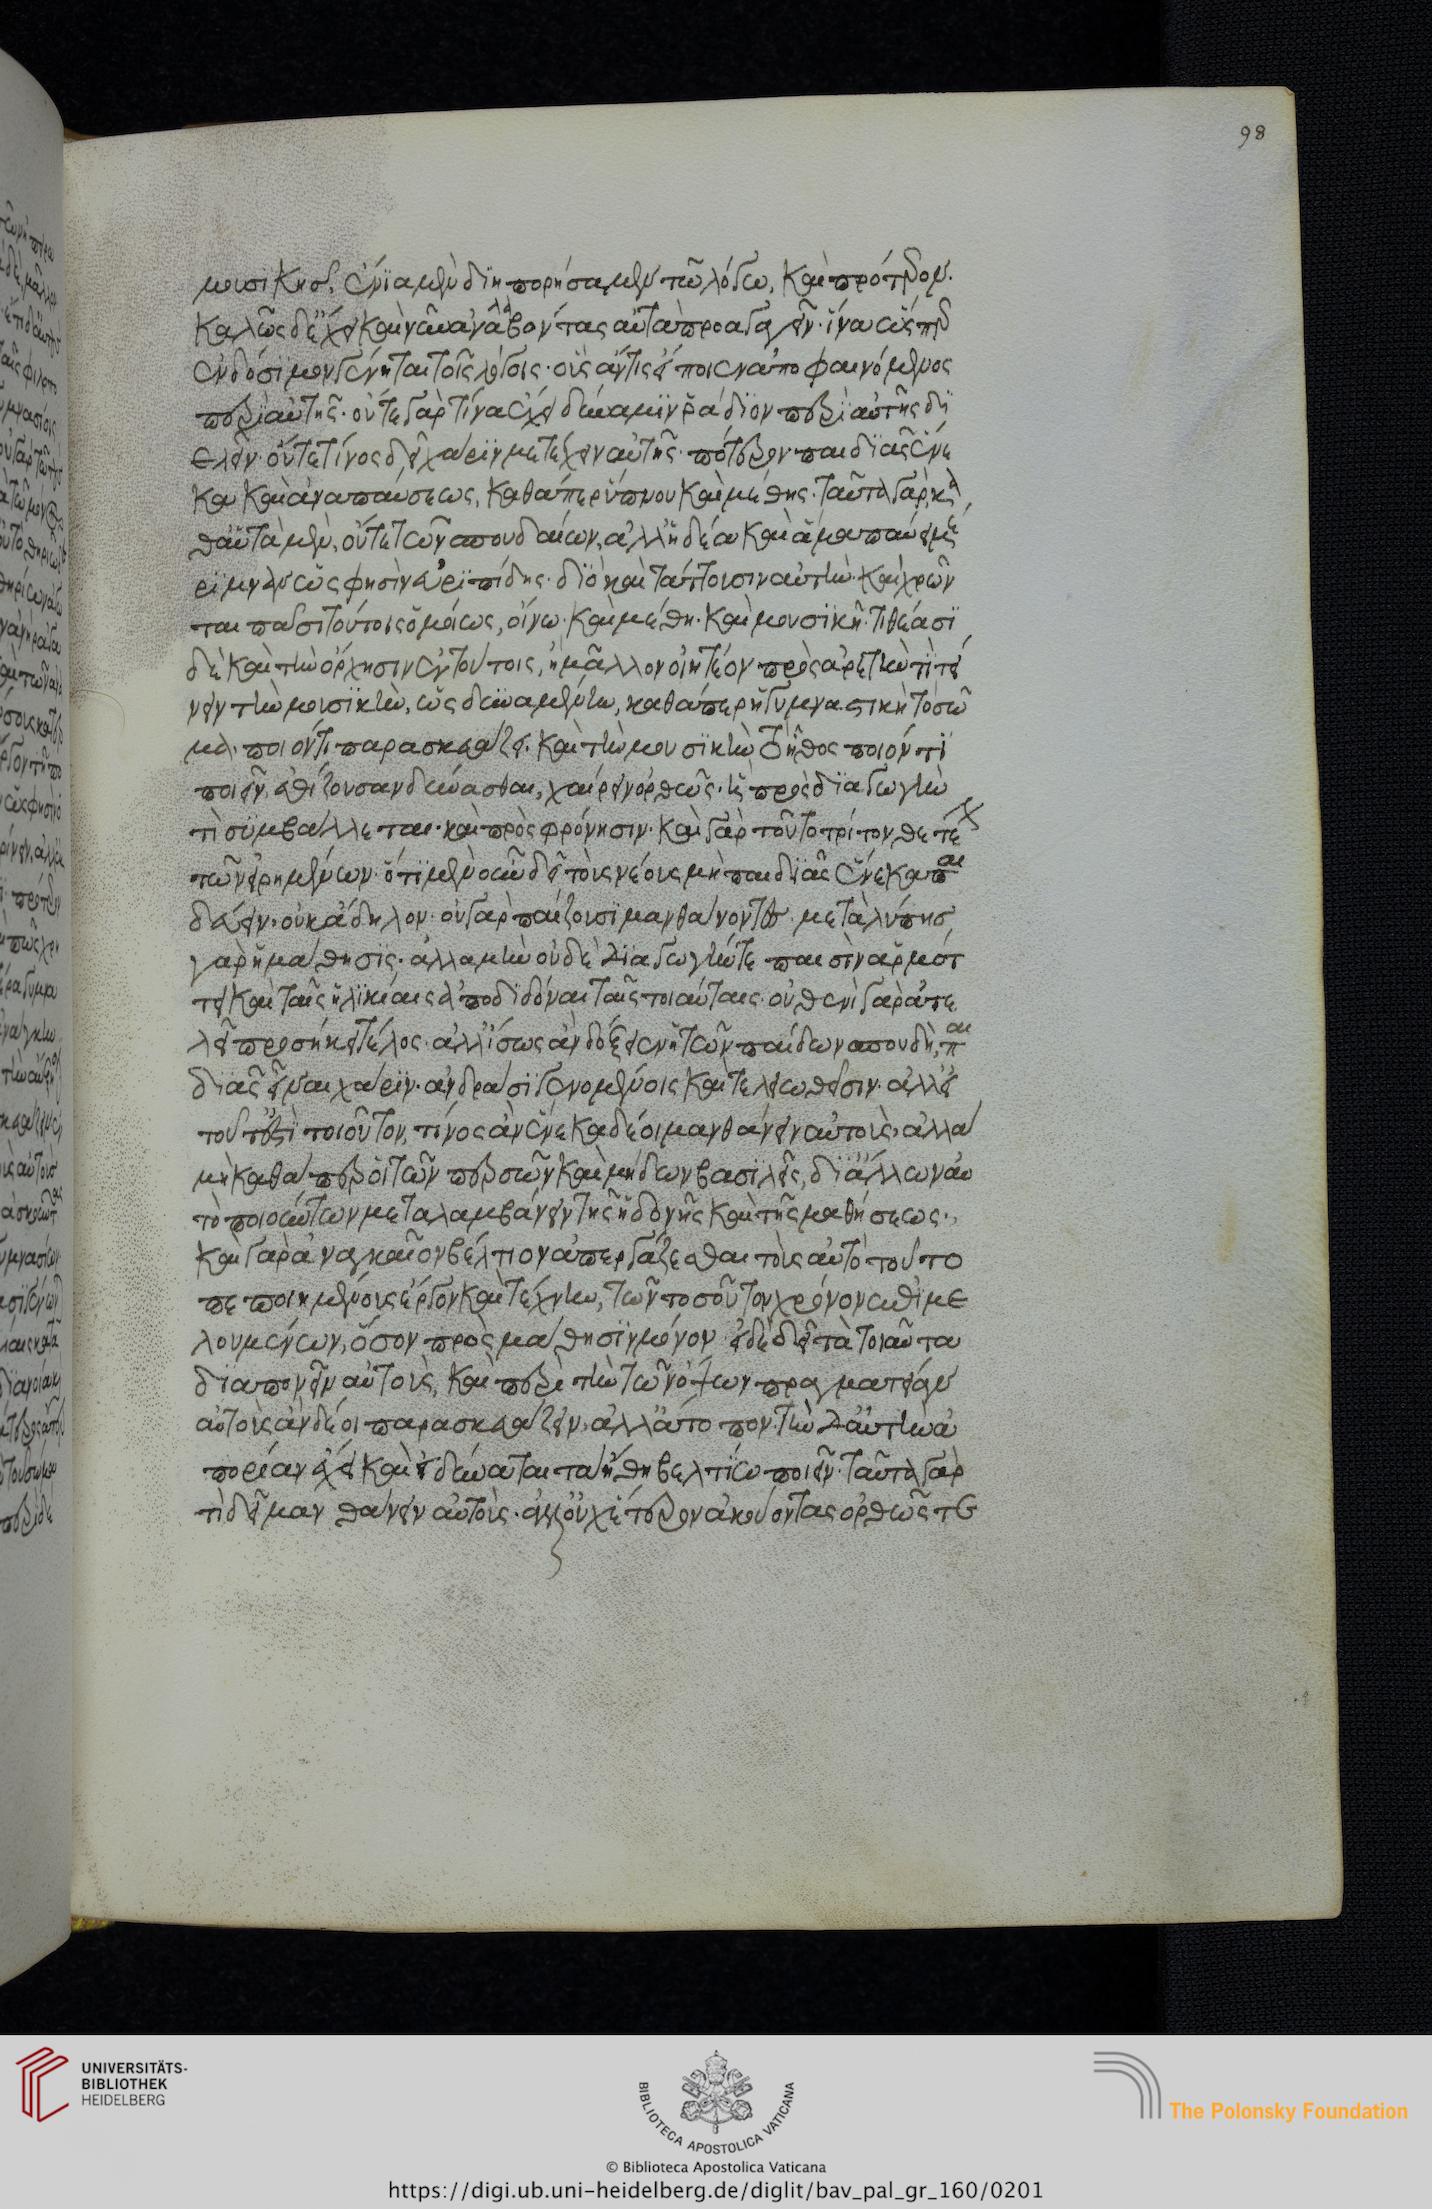 98
μουσικῆς, ἔνια μὲν διηπορήσαμεν τῶ λόγω, καὶ πρότερον.
καλῶς δ' ἔχει καὶ νῦν ἀναλαβόντας αὐτὰ προαγαγεῖν. ἵνα ὥσπερ
ἐνδόσιμον γένηται τοῖς λόγοις. οὓς ἄν τις εἴποιεν ἀποφαινόμενος
περὶ αὐτῆς. οὔτε γὰρ τίνα ἔχει δύναμιν ῥάδιον περὶ αὐτῆς δι
ελεῖν. οὔτε τίνος δεῖ χάριν μετέχειν αὐτῆς. πότερον παιδιᾶς ἕνε
κα καὶ ἀναπαύσεως, καθάπερ ὕπνου καὶ μέθης. ταῦτα γὰρ, κ
θαὐτὰ μὲν, οὔτε τῶν σπουδαίων, ἀλλ' ἡδέα καὶ ἅμα παύει μέ
ριμναν ὥς φησὶν εὐριπίδης. διὸ καὶ τάττουσιν αὐτὴν. καὶ χρῶν
ται πᾶσι τούτοις ὁμοίως, οἴνω. καὶ μέθη. καὶ μουσικῆ. τιθέασι
δὲ καὶ τὴν ὄρχησιν ἐν τούτοις, ἢ μᾶλλον οἰητέον πρὸς ἀρετὴν τὶ τεί
νειν τὴν μουσικὴν, ὡς δυναμένην, καθάπερ ἡ γυμναστικὴ τὸ σῶ
μα. ποιόν τι παρασκευάζει. καὶ τὴν μουσικὴν τὸ ἦθος ποιόν τι
ποιεῖν, ἐθίζουσαν δύνασθαι, χαίρειν ὀρθῶς. ἢ πρὸς διαγωγὴν
τὶ συμβάλλεται. καὶ πρὸς φρόνησιν. καὶ γὰρ τοῦτο τρίτον θετέ
τῶν εἰρημένων. ὅτι μὲν οὖν δεῖ τοὺς νέους μὴ παιδιᾶς ἕνεκα παι
δεύειν. οὐκ ἄδηλον. οὐ γὰρ παίζουσι μανθάνοντες. μετὰ λύπης
γὰρ ἡ μάθησις. ἀλλὰ μὴν οὐδὲ διαγωγήν τε παισὶν ἁρμότ
τει καὶ ταῖς ἡλικίαις ἀποδιδόναι ταῖς τοιαύταις. οὐθενὶ γὰρ ἀτε
λεῖ προσήκει τέλος. ἀλλ' ἴσως ἂν δόξειεν ἡ τῶν παίδων σπουδὴ, παι
διᾶς εἶναι χάριν. ἀνδράσι γενομένοις καὶ τελειωθεῖσιν. ἀλλ' εἰ
τοῦτ' ἐστὶ τοιοῦτον, τίνος ἂν ἕνεκα δέοι μανθάνειν αὐτοὺς, ἀλλὰ
μὴ καθάπερ οἱ τῶν περσῶν καὶ μήδων βασιλεῖς, δι' ἄλλων αὐ
τὸ ποιούντων μεταλαμβάνειν τῆς ἡδονῆς καὶ τῆς μαθήσεως.
καὶ γὰρ ἀναγκαῖον βέλτιον ἀπεργάζεσθαι τοὺς αὐτὸ τοῦτο
πεποιημένους ἔργον καὶ τέχνην, τῶν τοσοῦτον χρόνον ἐπιμε
λουμένων, ὅσον πρὸς μάθησιν μόνον. εἰ δὲ δεῖ τὰ τοιαῦτα
διαπονεῖν αὐτοὺς, καὶ περὶ τὴν τῶν ὄψων πραγματείαν
αὐτοὺς ἂν δέοι παρασκευάζειν. ἀλλ' ἄτοπον. τὴν δ' αὐτὴν ἀ
πορίαν ἔχει καὶ εἰ δύναται τὰ ἤθη βελτίω ποιεῖν. ταῦτα γὰρ
τί δεῖ μανθάνειν αὐτοὺς. ἀλλ' οὐχ ἑτέρων ἀκούοντας ὀρθῶς τε
UNIVERSITÄTS-
BIBLIOTHEK
HEIDELBERG
BIBLIOTECA APOSTOLICA VATICANA
The Polonsky Foundation
© Biblioteca Apostolica Vaticana
https://digi.ub.uni-heidelberg.de/diglit/bav_pal_gr_160/0201